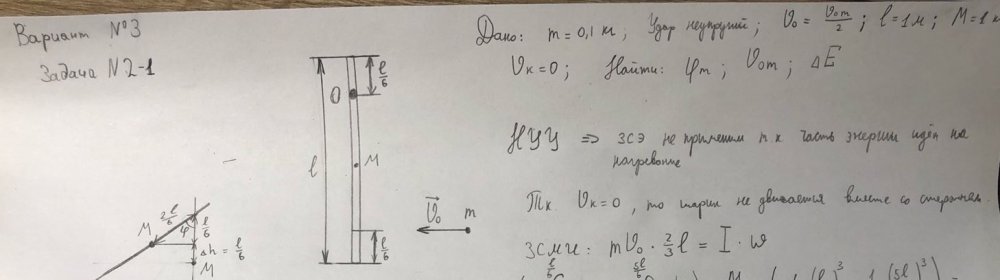 Вариант №3
Задача №2-1
Дано: m = 0,1 кг; Удар неупругий; V₀ = V₀m/2; l = 1м; M = 1 к
Vк = 0; Найти: φm; V₀m; ΔE
НУУ ⇒ ЗСЭ не применим т.к часть энергии идёт на
нагревание
Т.к. Vк = 0, то шарик не двигается вместе со стержнем.
ЗСМИ: mV₀ · 2/3 l = I · ω
l
l/6
O
M
l/6
V₀
m
2l/6
M
φ
l/6
Δh = l/6
M